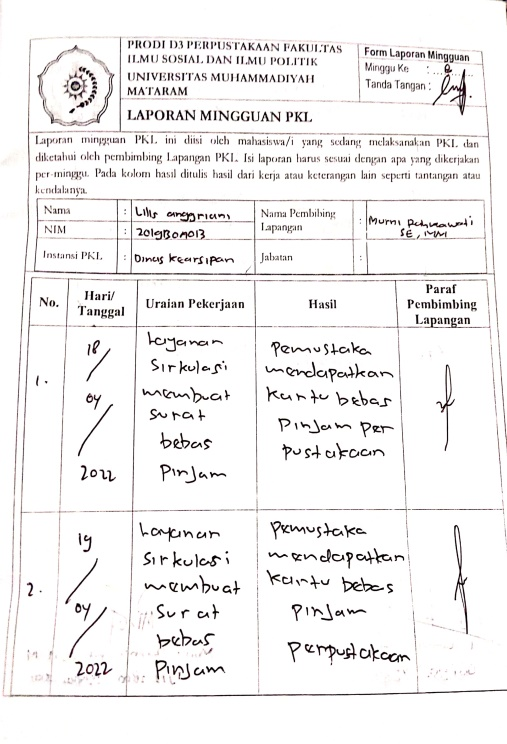 PRODI D3 PERPUSTAKAAN FAKULTAS
ILMU SOSIAL DAN ILMU POLITIK
UNIVERSITAS MUHAMMADIYAH
MATARAM
LAPORAN MINGGUAN PKL
Form Laporan Mingguan
Minggu Ke : ...2
Tanda Tangan :
Laporan mingguan PKL ini diisi oleh mahasiswa/i yang sedang melaksanakan PKL dan
diketahui oleh pembimbing Lapangan PKL. Isi laporan harus sesuai dengan apa yang dikerjakan
per-minggu. Pada kolom hasil ditulis hasil dari kerja atau keterangan lain seperti tantangan atau
kendalanya.
Nama : Lilis anggriani
Nama Pembibing
Lapangan : Murni
SE, MM
NIM : 2019B0A013
Instansi PKL : Dinas Kearsipan
Jabatan :
No.
Hari/
Tanggal
Uraian Pekerjaan
Hasil
Paraf
Pembimbing
Lapangan
1.
18
/
04
/
2022
Layanan
Sirkulasi
membuat
surat
bebas
Pinjam
Pemustaka
mendapatkan
kartu bebas
Pinjam per
pustakaan
2.
19
/
04
/
2022
Layanan
Sirkulasi
membuat
Surat
bebas
Pinjam
Pemustaka
mendapatkan
kartu bebas
Pinjam
Perpustakaan